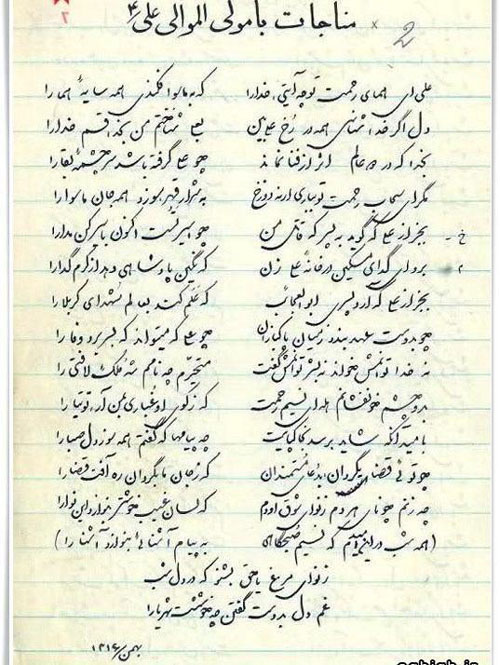 مناجات با مولی الموالی علی ع
علی ای همای رحمت تو چه آیتی خدا را که به ماسوا فکندی همه سایهٔ هما را
دل اگر خداشناسی همه در رخ علی بین بعلی شناختم من بخدا قسم خدا را
بخدا که در دو عالم اثر از فنا نماند چو علی گرفته باشد سر چشمهٔ بقا را
مگر ای سحاب رحمت تو بباری ار نه دوزخ به شرار قهر سوزد همه جان ماسوا را
بجز از علی که گوید به پسر که قاتل من چو اسیر تست اکنون باسیر کن مدارا
برو ای گدای مسکین در خانهٔ علی زن که نگین پادشاهی دهد از کرم گدا را
بجز از علی که آرد پسری ابوالعجائب که علم کند بعالم شهدای کربلا را
چو بدوست عهد بندد ز میان پاکبازان چو علی که میتواند که بسر برد وفا را
نه خدا توانمش خواند نه بشر توانمش گفت متحیرم چه نامم شه ملک لافتی را
بدو چشم خونفشانم هله ای نسیم رحمت که ز کوی او غباری بمن آر توتیا را
بامید آنکه شاید برسد بخاک پایت چه پیامها که گفتم همه سوز دل صبا را
چو توئی قضا بگردان بدعای مستمندان که ز جان ما بگردان ره آفت قضا را
چه زنم چو نای هر دم ز نوای شوق او دم که لسان غیب خوشتر بنوازد این نوا را
(همه شب در این امیدم که نسیم صبحگاهی به پیام آشنائی بنوازد آشنا را)
ز نوای مرغ یا حق بشنو که در دل شب
غم دل بدوست گفتن چه خوشست شهریارا
بهمن